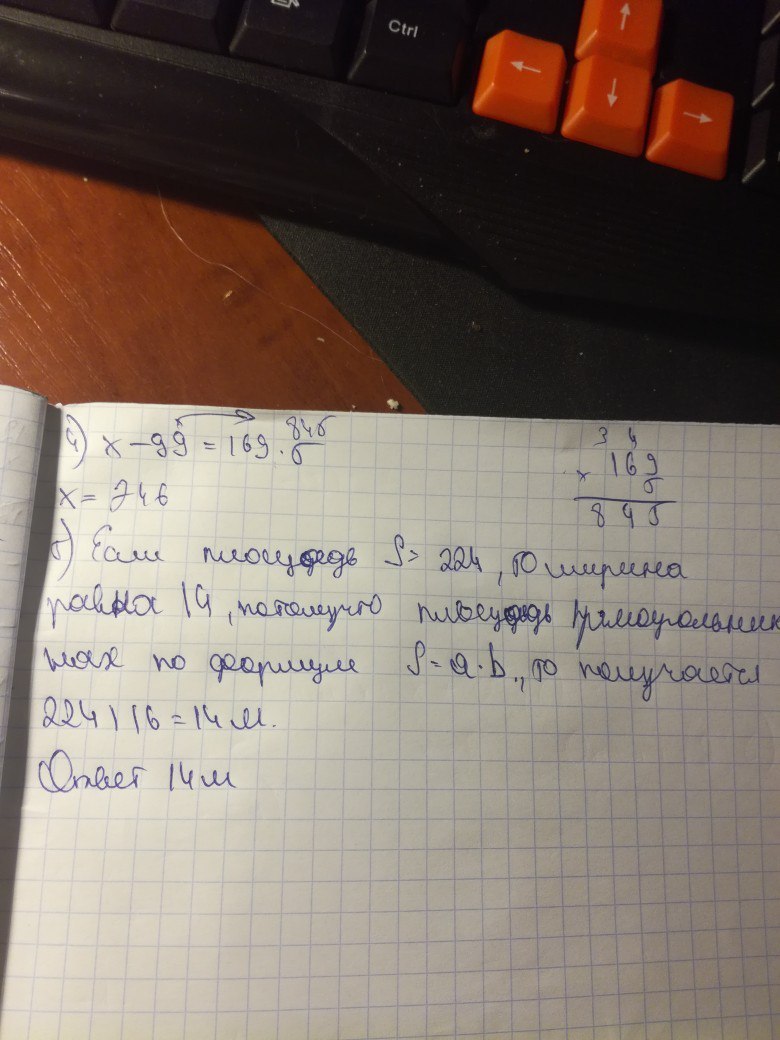 Ctrl
4) x - 99 = 169 · 5
845
x = 746
3 4
× 169
5
845
5) Если площадь S = 224, то ширина
равна 14, потомучто площадь прямоугольник
по формуле S = a · b, то получается
224 | 16 = 14 м.
Ответ 14 м